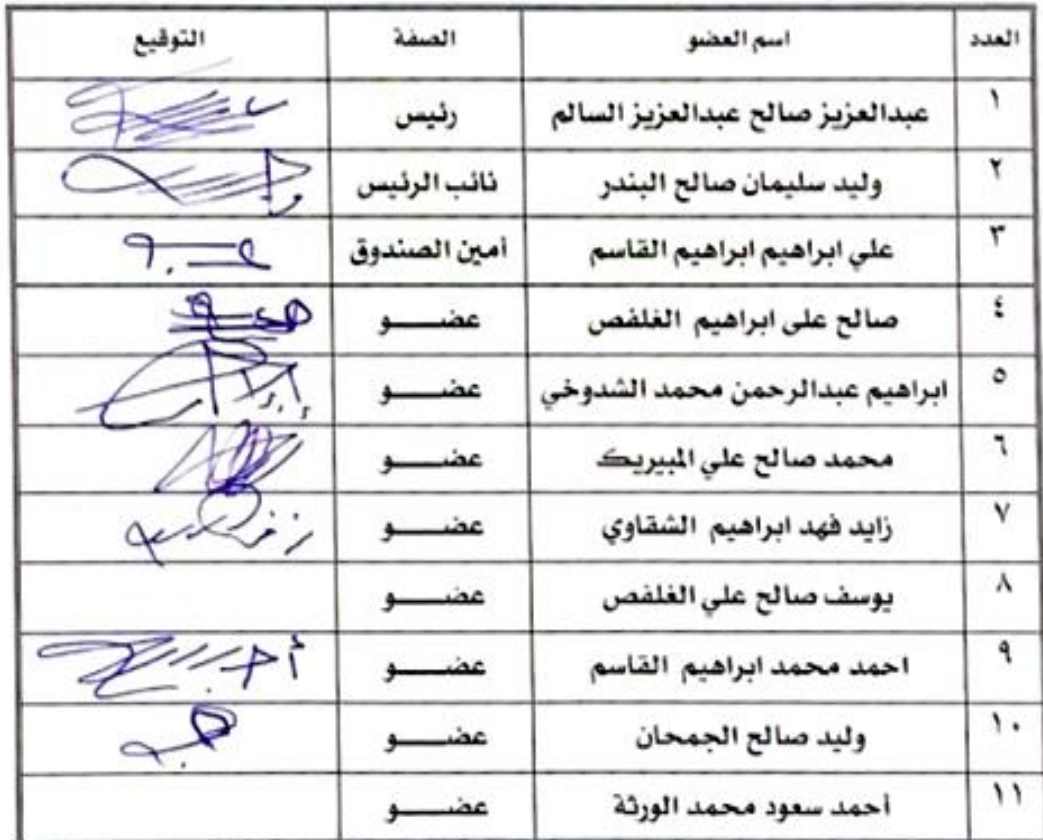 العدد اسم العضو الصفة التوقيع
١ عبدالعزيز صالح عبدالعزيز السالم رئيس
٢ وليد سليمان صالح البندر نائب الرئيس
٣ علي ابراهيم ابراهيم القاسم أمين الصندوق
٤ صالح على ابراهيم الغلفص عضـــــو
٥ ابراهيم عبدالرحمن محمد الشدوخي عضـــــو
٦ محمد صالح علي المبيريك عضـــــو
٧ زايد فهد ابراهيم الشقاوي عضـــــو
٨ يوسف صالح علي الغلفص عضـــــو
٩ احمد محمد ابراهيم القاسم عضـــــو
١٠ وليد صالح الجمحان عضـــــو
١١ أحمد سعود محمد الورثة عضـــــو